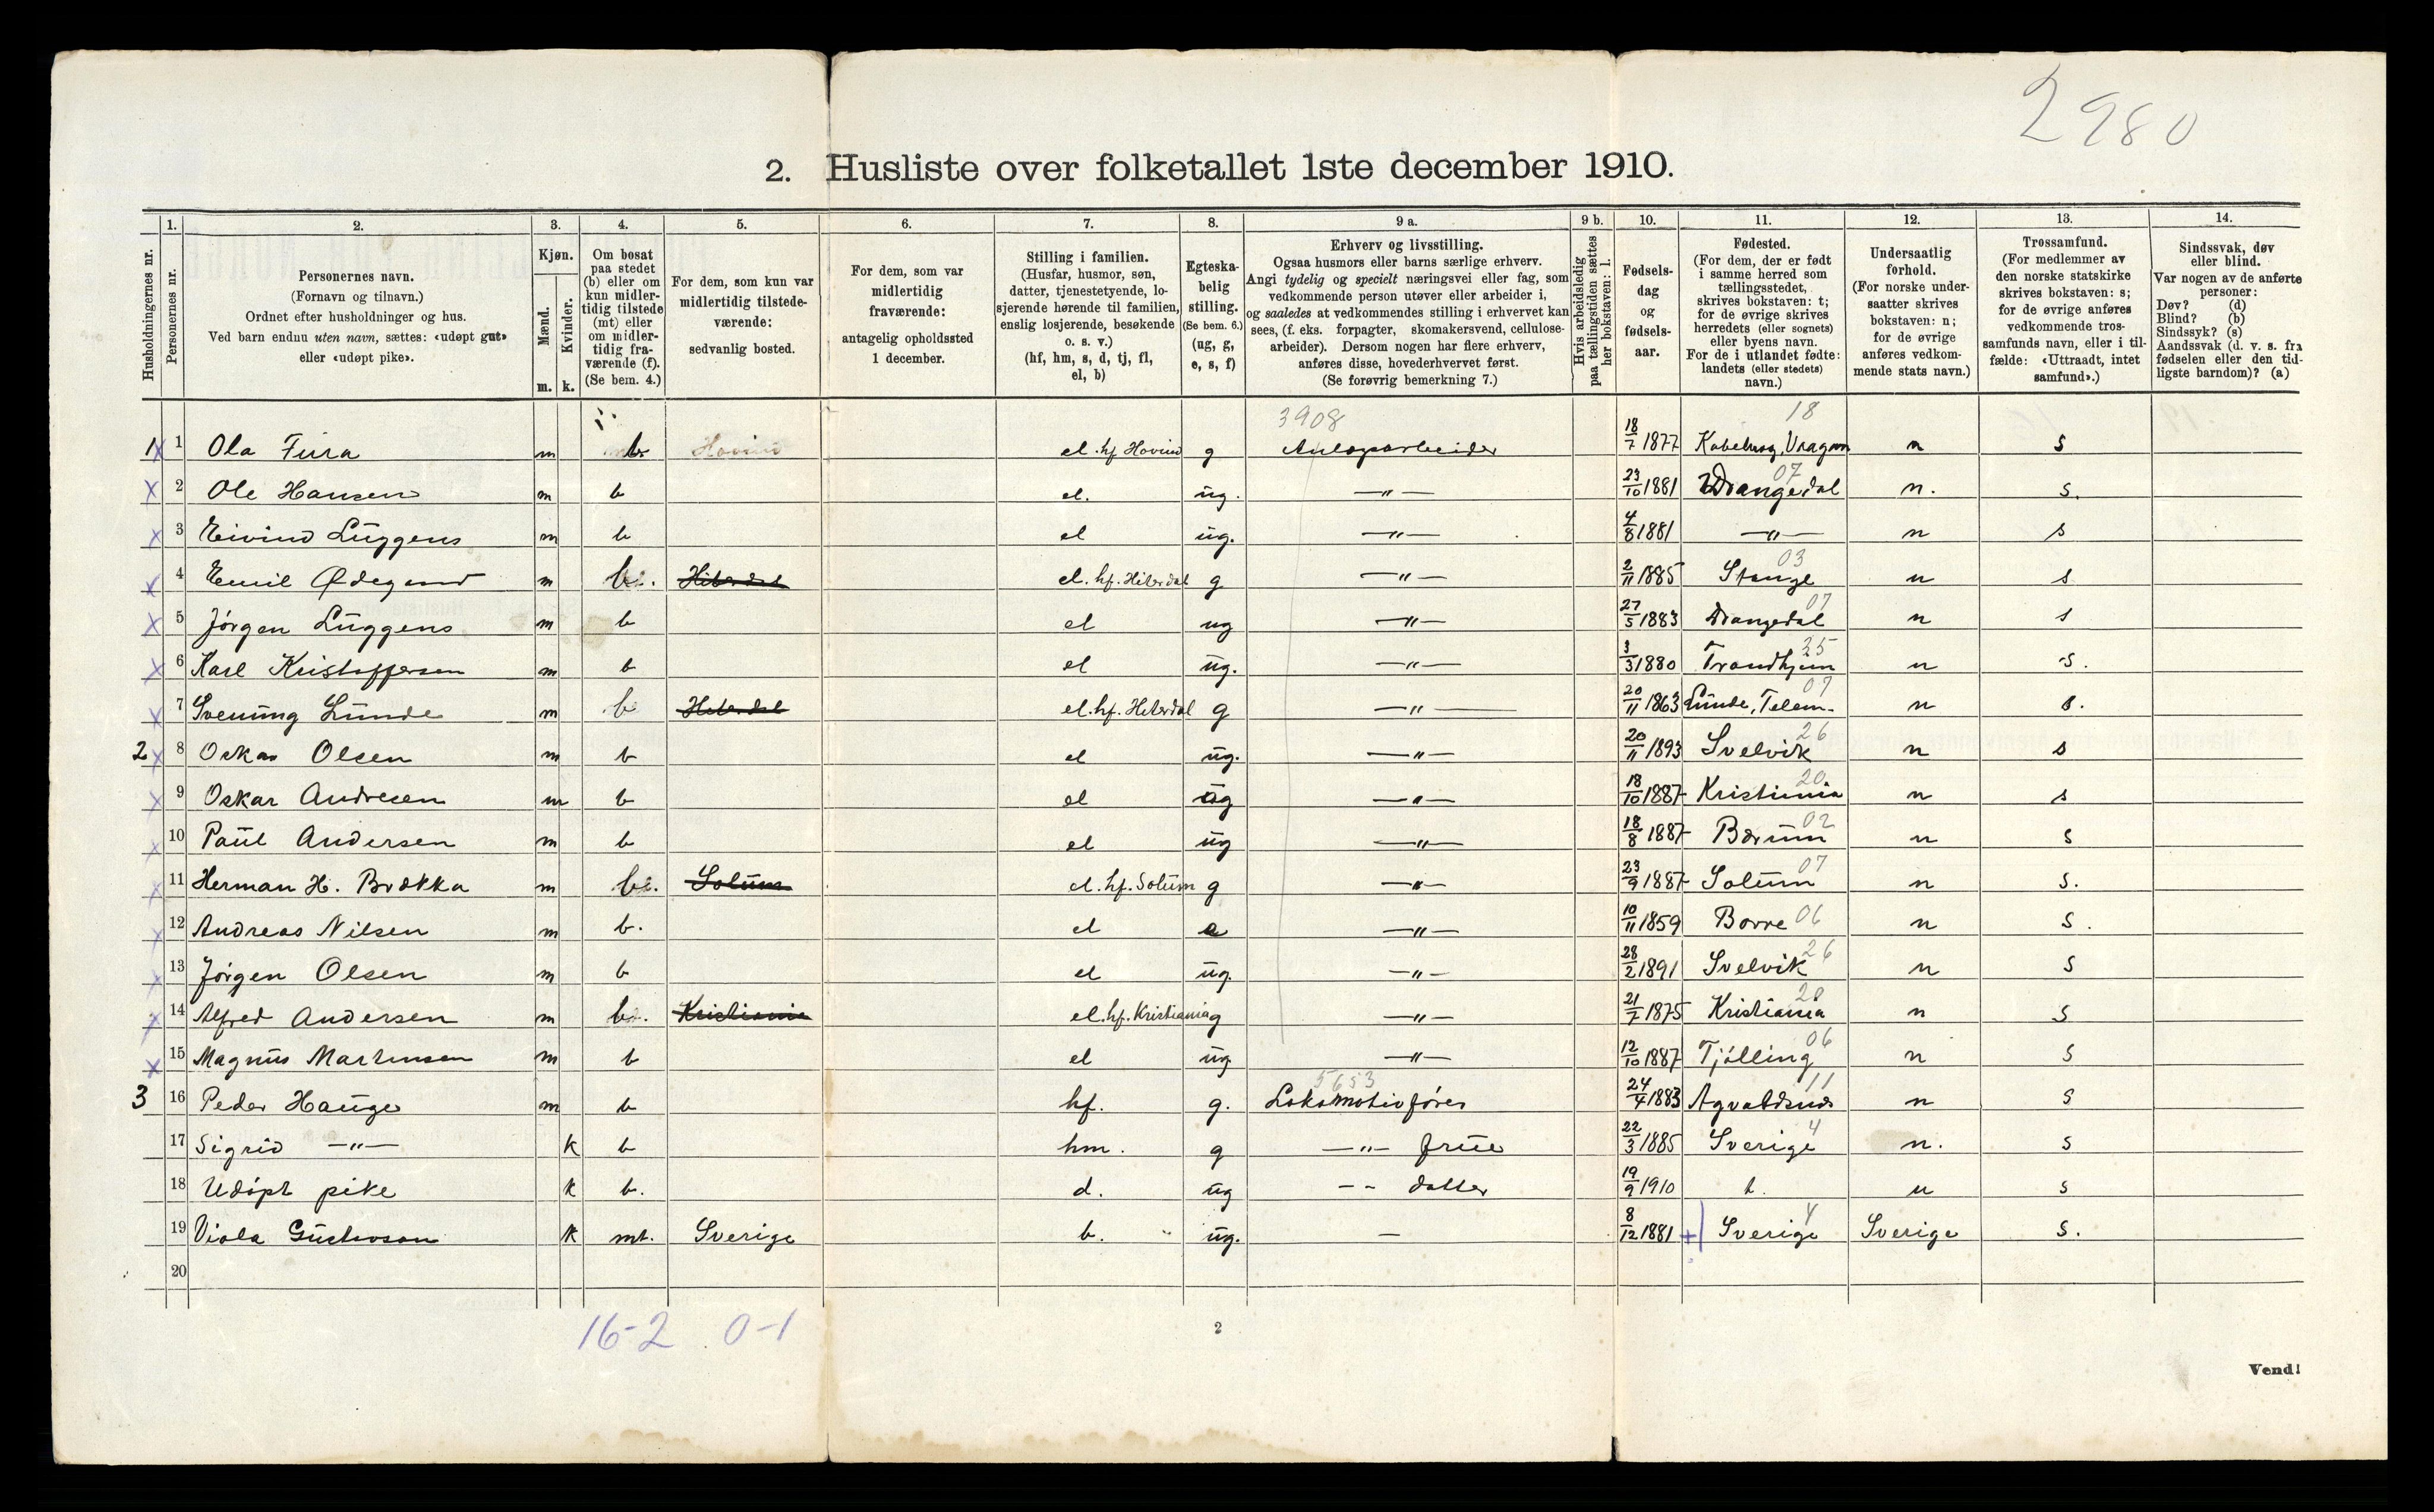 2980
2. Husliste over folketallet 1ste december 1910.
Husholdningernes nr.
1. Personernes nr.
2. Personernes navn.
(Fornavn og tilnavn.)
Ordnet efter husholdninger og hus.
Ved barn endnu uten navn, sættes: «udøpt gut»
eller «udøpt pike».
3. Kjøn.
Mænd. m.
Kvinder. k.
4. Om bosat
paa stedet
(b) eller om
kun midler-
tidig tilstede
(mt) eller
om midler-
tidig fra-
værende (f).
(Se bem. 4.)
5. For dem, som kun var
midlertidig tilstede-
værende:
sedvanlig bosted.
6. For dem, som var
midlertidig
fraværende:
antagelig opholdssted
1 december.
7. Stilling i familien.
(Husfar, husmor, søn,
datter, tjenestetyende, lo-
sjerende hørende til familien,
enslig losjerende, besøkende
o. s. v.)
(hf, hm, s, d, tj, fl,
el, b)
8. Egteska-
belig
stilling.
(Se bem. 6.)
(ug, g,
e, s, f)
9 a. Erhverv og livsstilling.
Ogsaa husmors eller barns særlige erhverv.
Angi tydelig og specielt næringsvei eller fag, som
vedkommende person utøver eller arbeider i,
og saaledes at vedkommendes stilling i erhvervet kan
sees, (f. eks. forpagter, skomakersvend, cellulose-
arbeider). Dersom nogen har flere erhverv,
anføres disse, hovederhvervet først.
(Se forøvrig bemerkning 7.)
9 b. Hvis arbeidsledig
paa tællingstiden sættes
her bokstaven: l.
10. Fødsels-
dag
og
fødsels-
aar.
11. Fødested.
(For dem, der er født
i samme herred som
tællingsstedet,
skrives bokstaven: t;
for de øvrige skrives
herredets (eller sognets)
eller byens navn.
For de i utlandet fødte:
landets (eller stedets)
navn.)
12. Undersaatlig
forhold.
(For norske under-
saatter skrives
bokstaven: n;
for de øvrige
anføres vedkom-
mende stats navn.)
13. Trossamfund.
(For medlemmer av
den norske statskirke
skrives bokstaven: s;
for de øvrige anføres
vedkommende tros-
samfunds navn, eller i til-
fælde: «Uttraadt, intet
samfund».)
14. Sindssvak, døv
eller blind.
Var nogen av de anførte
personer:
Døv? (d)
Blind? (b)
Sindssyk? (s)
Aandssvak (d. v. s. fra
fødselen eller den tid-
ligste barndom)? (a)
3908 18
1 x 1 Ola Fura m b Hovind el. hf Hovind g Anlægsarbeider 18/7 1877 n s
x 2 Ole Hansen m b el. ug. —"— 23/10 1881 Drangedal 07 n. s.
x 3 Eivind Luggens m b el ug. —"— 4/8 1881 —"— n s
x 4 Emil Ødegaard m b. Hiterdal el. hf. Hiterdal g —"— 2/11 1885 Stange 03 n s
x 5 Jørgen Luggens m b el ug —"— 27/5 1883 Drangedal 07 n s
x 6 Karl Kristoffersen m b el ug. —"— 3/3 1880 Trondhjem 35 n s.
x 7 Svenung Lunde m b Hiterdal el. hf. Hiterdal g —"— 20/11 1863 Lunde, Telem. 07 n s.
2 x 8 Oskar Olsen m b el ug. —"— 20/11 1893 Svelvik 26 n s
x 9 Oskar Andresen m b el ug —"— 18/10 1887 Kristiania 20 n s
x 10 Paul Andersen m b el ug —"— 18/8 1887 Bærum 02 n s
x 11 Herman H. Brækka m b. Solum el. hf. Solum g —"— 23/9 1887 Solum 07 n s.
x 12 Andreas Nilsen m b. el e —"— 10/11 1859 Borre 06 n s.
x 13 Jørgen Olsen m b el ug. —"— 28/2 1891 Svelvik 26 n s
x 14 Alfred Andersen m b. Kristiania el. hf. Kristiania g —"— 21/7 1875 Kristiania 20 n s
x 15 Magnus Martinsen m b el ug —"— 12/10 1887 Tjølling 06 n s
5653
3 16 Peder Hauge m b hf. g. Lokomotivfører 24/4 1883 Agvaldsnes 11 n s
17 Sigrid —"— k b hm. g —"— frue 22/3 1885 Sverige 4 n. s
18 Udøpt pike k b. d. ug - - datter 19/9 1910 t. n s
19 Viola Gustavson k mt. Sverige b. ug. — 8/12 1881 + Sverige 4 Sverige s.
20
16-2 0-1
2
Vend!